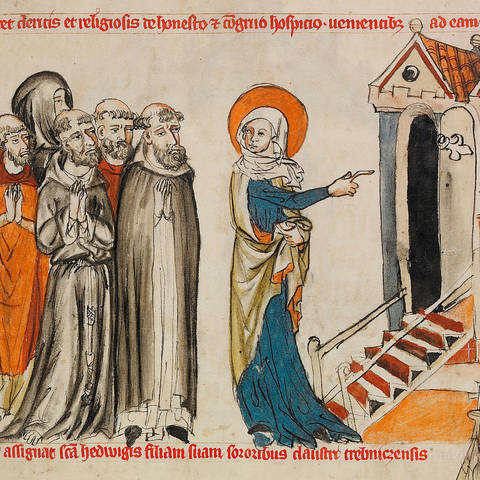 et clericis et religiosis de honesto ⁊ co͞gruo hospicio · uenientibꝫ ad eam
assignat sc͞a hedwigis filiam suam sororibus claustri trebniczensis